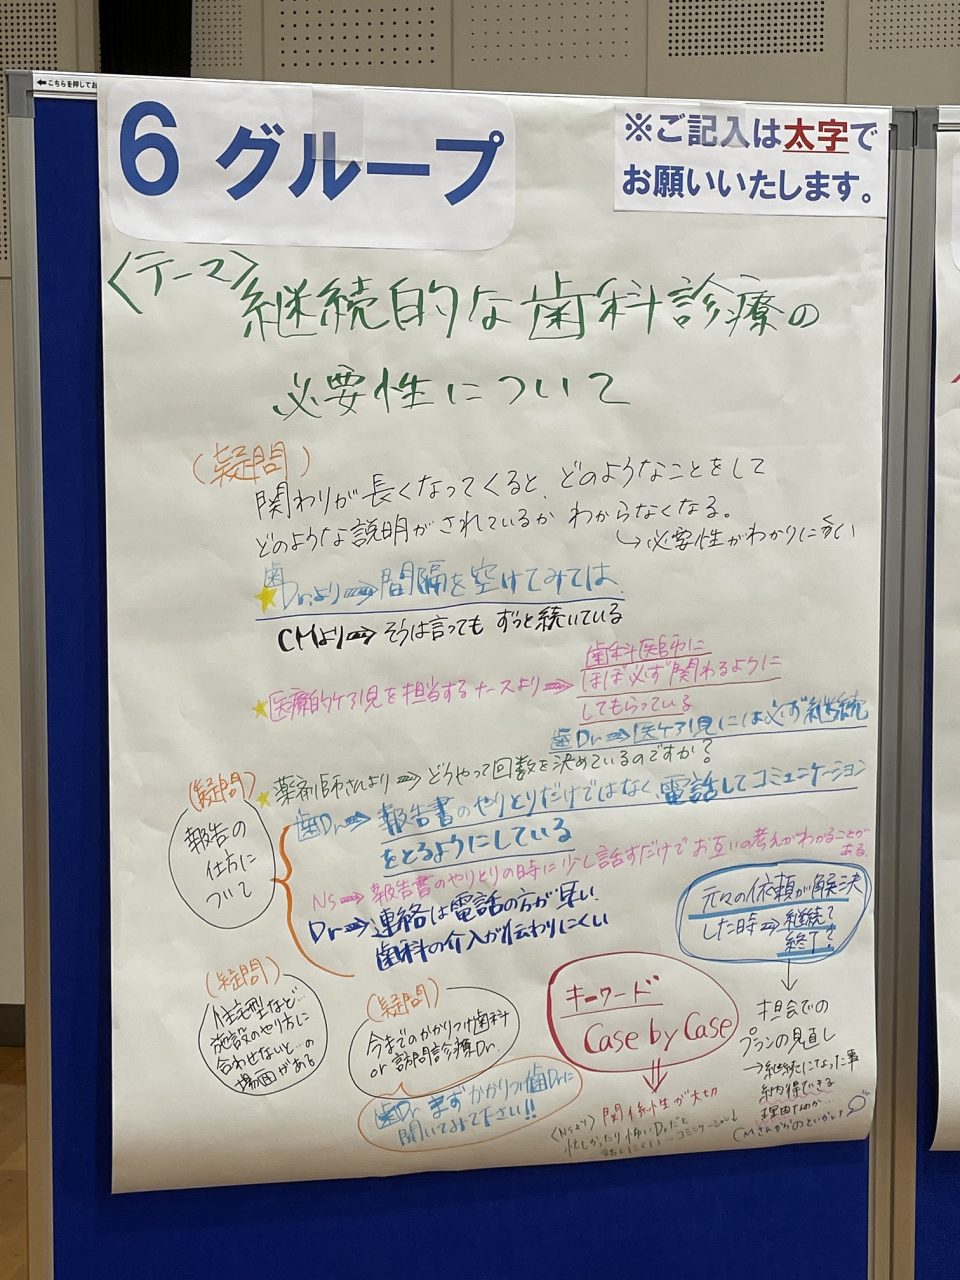 ←こちらを押してお
6 グループ
※ご記入は太字で
お願いいたします。
〈テーマ〉継続的な歯科診療の
必要性について
(疑問)
関わりが長くなってくると、どのようなことをして
どのような説明がされているかわからなくなる。
↳必要性がわかりにくい
歯Drより⇒間隔を空けてみては
CMより⇒そうは言ってもずっと続いている
★医療的ケア児を担当するナースより⇒歯科医師に
ほぼ必ず関わるように
してもらっている
歯Dr⇒医ケア児には必ず継続
★薬剤師さんより⇒どうやって回数を決めているのですか?
(疑問)
報告の
仕方に
ついて
歯Dr⇒報告書のやりとりだけではなく、電話してコミュニケーション
をとるようにしている
Ns⇒報告書のやりとりの時に少し話すだけでお互いの考えがわかることが
ある
Dr⇒連絡は電話の方が早い
歯科の介入が伝わりにくい
元々の依頼が解決
した時⇒継続?
終了?
↓
担会での
プランの見直し
→継続になった事
納得できる
理由なのか…
(疑問)
住宅型など…
施設のやり方に
合わせないと…の
場面がある
(疑問)
今までのかかりつけ歯科
or 訪問診療Dr.
歯Dr まずかかりつけ歯Drに
聞いてみて下さい!!
キーワード
Case by Case
⇓
〈Nsより〉関係性が大切
忙しかったり怖いDrだと
話しにくい…コミュニケーション↓